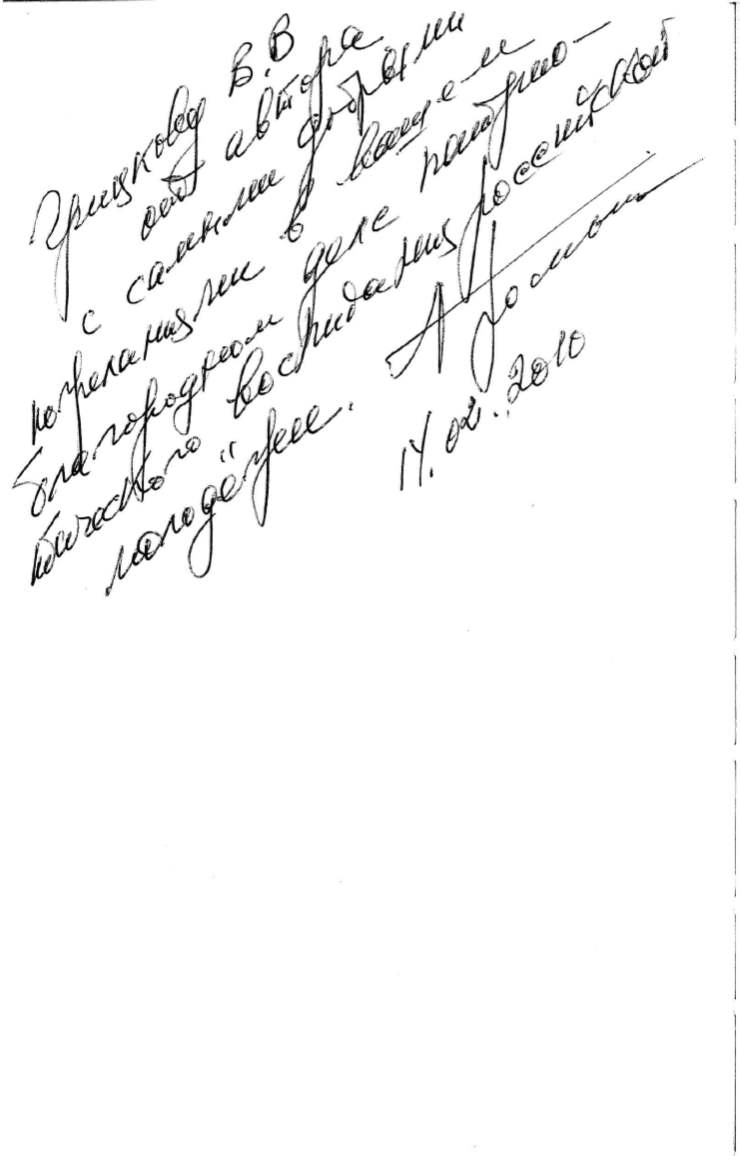 Грицкову В.В
от автора
с самыми добрыми
пожеланиями в вашем
благородном деле патрио-
тического воспитания российской
молодёжи.
14.02.2010